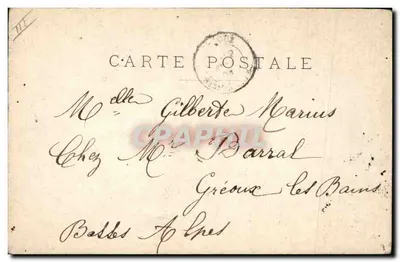 CARTE POSTALE
Melle Gilberte Marius
Chez Mr Barral
Gréoux les Bains
Basses Alpes